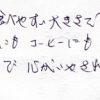 食べやすい大きさで
にも コーヒーにも
で 心がいやされ